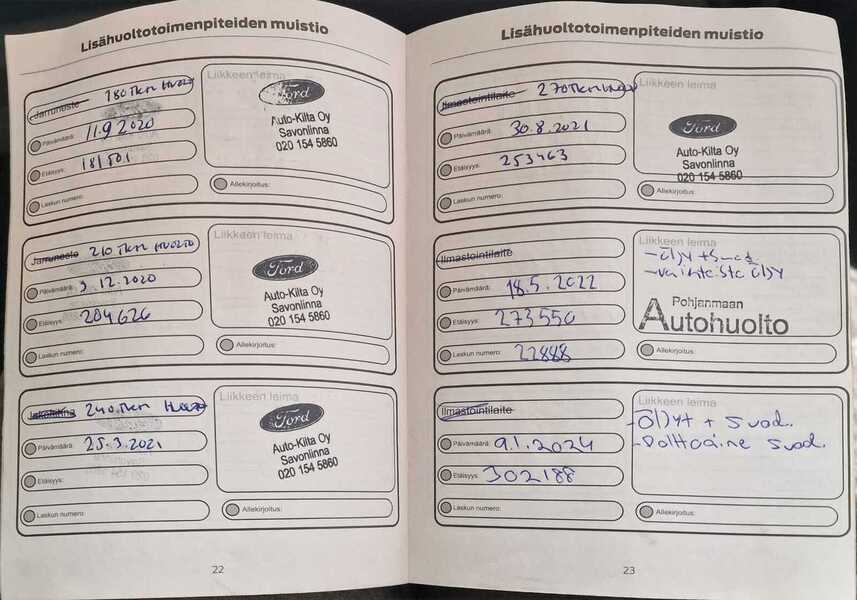 Lisähuoltotoimenpiteiden muistio
Jarruneste 180 TKM Huolto
Päivämäärä: 11.9 2020
Etäisyys: 181501
Laskun numero:
Liikkeen leima
Ford
Auto-Kilta Oy
Savonlinna
020 154 5860
Allekirjoitus:
Jarruneste 210 TKM HUOLTO
Päivämäärä: 3.12.2020
Etäisyys: 204626
Laskun numero:
Liikkeen leima
Ford
Auto-Kilta Oy
Savonlinna
020 154 5860
Allekirjoitus:
240.TKM Huolto
Päivämäärä: 25.3.2021
Etäisyys:
Laskun numero:
Liikkeen leima
Ford
Auto-Kilta Oy
Savonlinna
020 154 5860
Allekirjoitus:
22
Lisähuoltotoimenpiteiden muistio
Ilmastointilaite 270TKM Huolto
Päivämäärä: 30.8.2021
Etäisyys: 253463
Laskun numero:
Liikkeen leima
Ford
Auto-Kilta Oy
Savonlinna
020 154 5860
Allekirjoitus:
Ilmastointilaite
Päivämäärä: 18.5.2022
Etäisyys: 273550
Laskun numero: 22888
Liikkeen leima
- öljy + suod.
- vaihteisto öljy
Pohjanmaan
Autohuolto
Allekirjoitus:
Ilmastointilaite
Päivämäärä: 9.1.2024
Etäisyys: 302188
Laskun numero:
Liikkeen leima
- Öljyt + suod.
- Polttoaine suod.
Allekirjoitus:
23